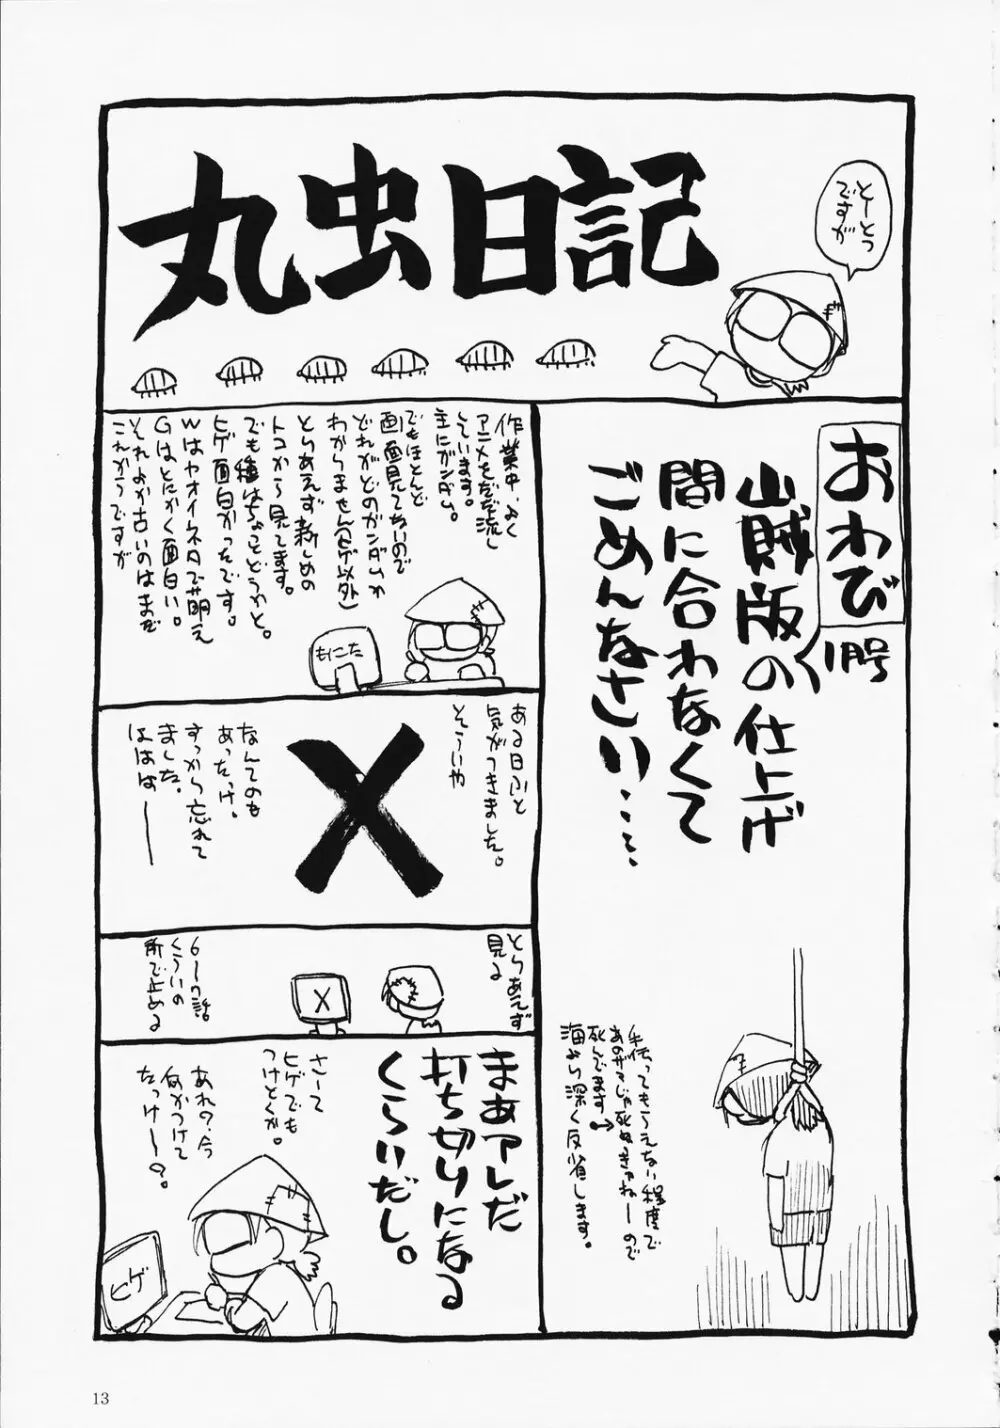 丸虫日記
とーとつ
ですが
おわび
1月号
山賊版の仕上げ
間に合わなくて
ごめんなさい……
手伝ってもらえない程度で
あのザマじゃ死ぬきゃねーので
死んでます→
海より深く反省します。
作業中、よく
アニメをだだ流し
しています。
主にガンダム。
でもほとんど
画面見てないので
どれがどのガンダムか
わかりません(ヒゲ以外)
とりあえず新しめの
トコから見てます。
でも種はちょっとどうかと。
ヒゲ面白かったです。
Wはヤオイネタで萌え
Gはとにかく面白い。
それよか古いのはまだ
これからですが
もにこた
ある日ふと
気がつきました。
そういや
X
なんてのも
あったっけ。
すっかり忘れて
ました。
ははは——
とりあえず
見る
X
6〜7話
くらいの
所で止める
まあアレだ
打ち切りになる
くらいだし。
さーて
ヒゲでも
つけとくか。
あれ?今
何かつけて
たっけー?
ヒゲ
13